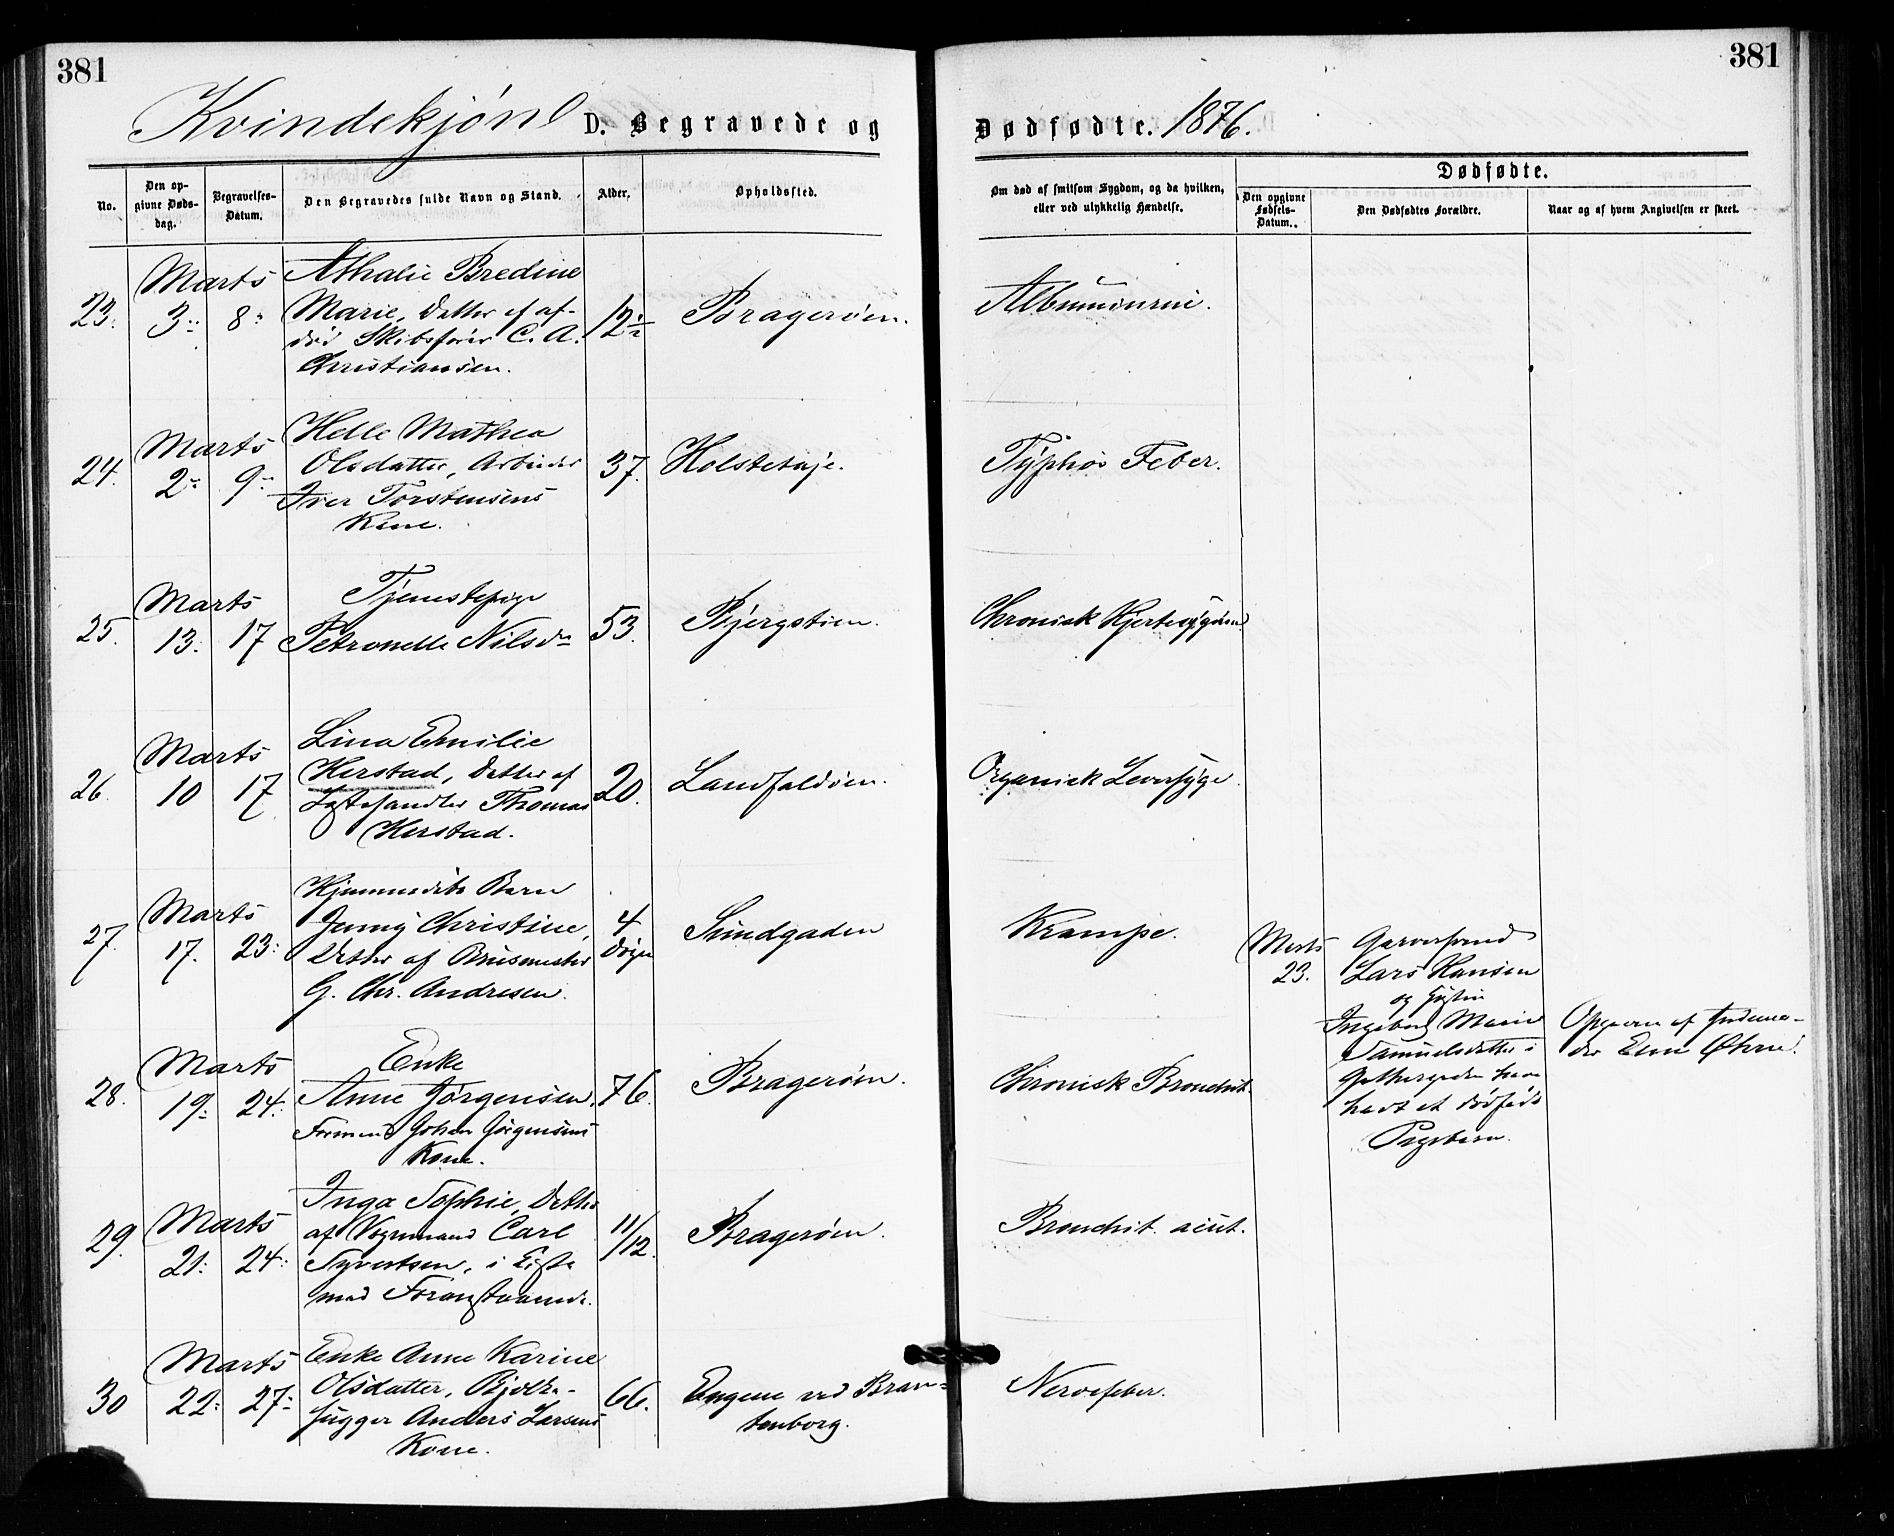 381
381
Kvindekjøn D. Begravede og
Dødfødte. 1876.
No.
Den op-
givne Døds-
dag.
Begravelses-
Datum.
Den Begravedes fulde Navn og Stand.
Alder.
Opholdssted.
Om død af smitsom Sygdom, og da hvilken,
eller ved ulykkelig Hændelse.
Dødfødte.
Den opgivne
Fødsels-
Datum.
Den Dødfødtes Forældre.
Naar og af hvem Angivelsen er skeet.
23.
Marts
3. 8.
Athalie Bredine
Marie, Datter af af-
død Skibsfører C. A.
Christiansen.
12
Bragerøen.
Albuminurie.
24.
Marts
2. 9.
Helle Mathea
Olsdatter, Arbeider
Iver Torstensens
Kone.
37.
Holstetøje.
Typhøs Feber.
25.
Marts
13. 17
Tjenestepige
Petronelle Nilsdr
53.
Bjergstien.
Chronisk Hjertesygdom
26.
Marts
10 17
Lina Emilie
Herstad, Datter af
Thomas
Herstad.
20.
Landfaldøen.
Organisk Leversyge
27.
Marts
17. 23.
Hjemmedøbt Barn
Jenny Christine,
Datter af
G. Chr. Andresen.
4
Døgn
Sundgaden
Krampe.
28.
Marts
19. 24.
Enke
Anne Jørgensen,
Formand Johan Jørgensens
Kone.
76.
Bragerøen.
Chronisk Bronchit.
29.
Marts
21. 24.
Inga Sophie, Datter
af Vognmand Carl
Syvertsen, i Kiste
med Foranstaaende.
11/12.
Bragerøen.
Bronchit. acut.
30
Marts
22. 27.
Enke Anne Karine
Olsdatter, Bjelke-
hugger Anders Larsens
Kone.
66.
Engene ved Bran-
tenborg.
Nervefeber.
Marts
23.
Garversvend
Lars Hansen
og Hustru
Ingeborg Marie
Samuelsdatter i
have
havt et dødfødt
Pigebarn.
Opgivet af Jordemo-
der Øhrn.